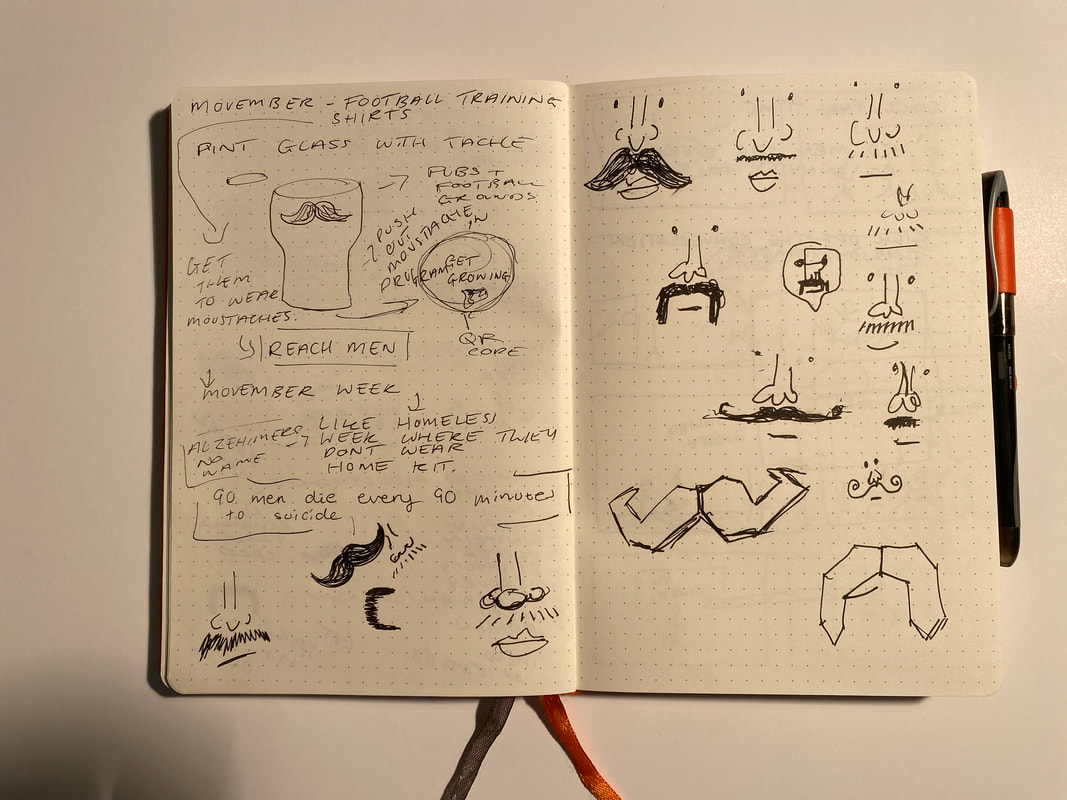 MOVEMBER - FOOTBALL TRAINING
SHIRTS
PINT GLASS WITH TACHE
PUBS +
FOOTBALL
GROUNDS
PUSH
OUT
MOUSTACHE
IN
PROGRAM
GET
GROWING
QR
CODE
GET
THEM
TO WEAR
MOUSTACHES.
REACH MEN
MOVEMBER WEEK
ALZEHIMERS
NO
NAME
LIKE HOMELESS
WEEK WHERE THEY
DONT WEAR
HOME KIT.
90 men die every 90 minutes
to suicide